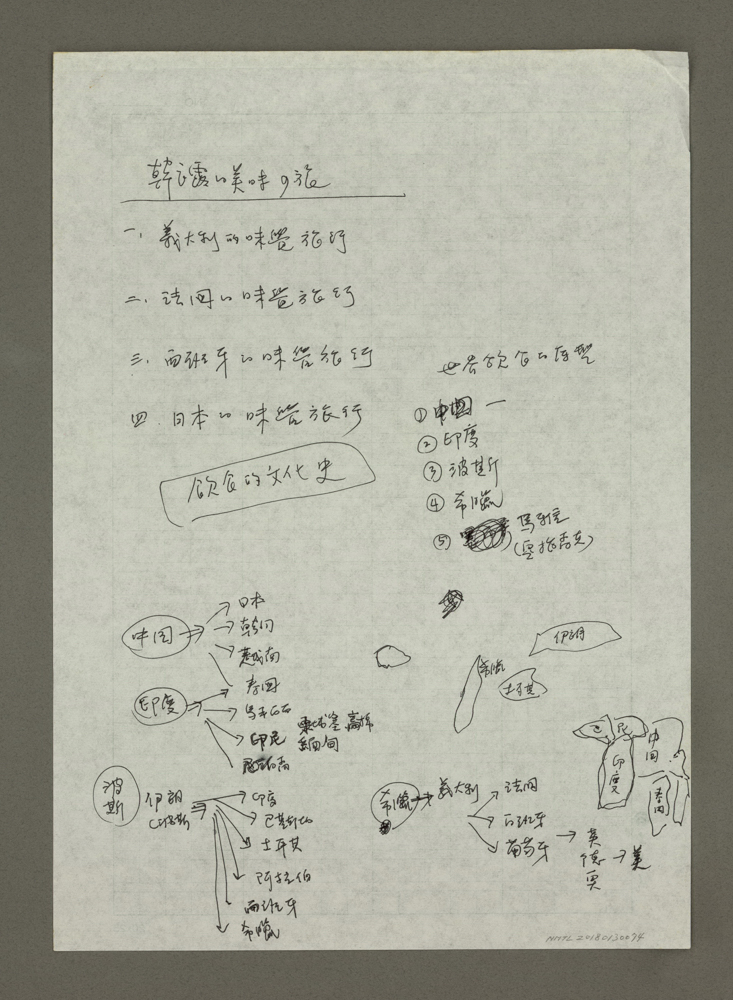 韓良露的美味の旅
一. 義大利的味覺旅行
二. 法國的味覺旅行
三. 西班牙的味覺旅行
四. 日本的味覺旅行
飲食的文化史
世界飲食的原型
① 中國 一
② 印度
③ 波斯
④ 希臘
⑤ 馬雅
中國
日本
韓國
越南
泰國
印度
馬來西亞
印尼
柬埔寨 高棉
緬甸
波斯
伊朗
印度
巴基斯坦
土耳其
阿拉伯
西班牙
希臘
希臘
義大利
法國
西班牙
葡萄牙
英
德
奧
美
伊朗
希臘
土耳其
巴
尼
印度
中國
NMTL20180130094